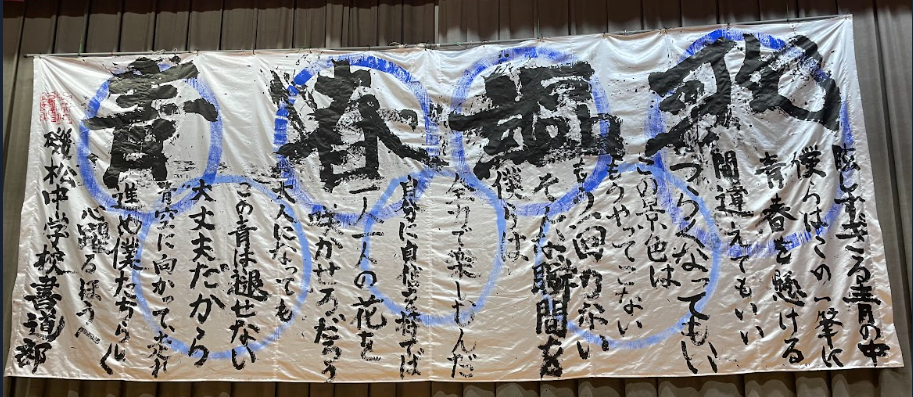 青春
眩しすぎる青の中
僕らはこの一筆に
青春を懸ける
間違えてもいい
つらくなってもいい
この景色は
もうやってこない
そんな瞬間を
僕らは
全力で楽しむんだ
自分に自信を持てば
一人一人の花を
咲かせるだろう
大人になっても
この青は褪せない
大丈夫だから
青空に向かって、走れ
進め僕たちらしく
心躍るほうへ
磯松中学校書道部